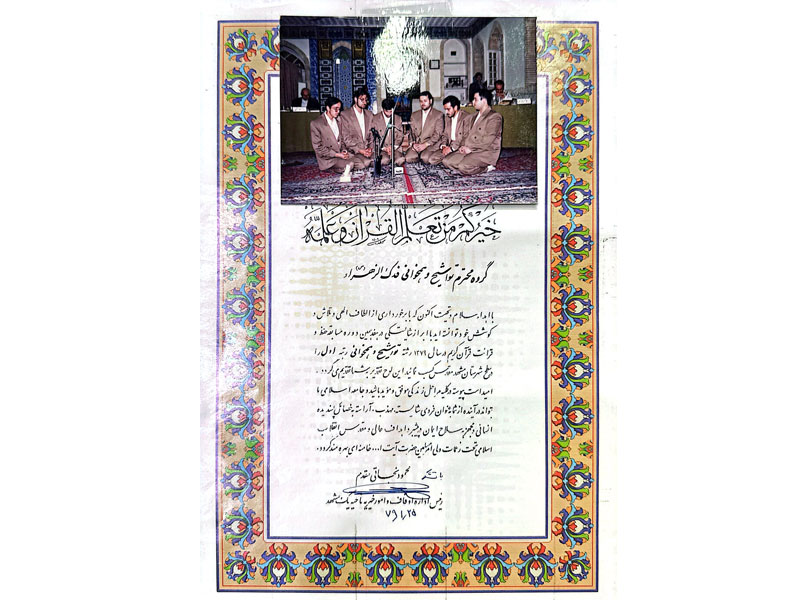 خیرکم من تعلم القرآن و علمه
گروه محترم تواشیح و همخوانی فدک الزهراء (س)
با اهداء سلام و تحیت اکنون که با برخورداری از الطاف الهی و تلاش و
کوشش خود توانسته اید با ابراز شایستگی در هفدهمین دوره مسابقه حفظ و
قرائت قرآن کریم در سال ۱۳۷۹ رشته تواشیح و همخوانی رتبه اول را
در سطح شهرستان مشهد مقدس کسب نمائید این لوح تقدیر به شما تقدیم می گردد.
امید است پیوسته در کلیه مراحل زندگی موفق و مؤید باشید و جامعه اسلامی ما
بتواند در آینده از شما بعنوان فردی شایسته، مهذب، آراسته به خصائل پسندیده
انسانی و مجهز به سلاح ایمان در پیشبرد اهداف عالی و مقدس انقلاب
اسلامی تحت زعامت ولی امر مسلمین حضرت آیت ا... خامنه ای بهره مند گردد.
با تشکر محمود نجاتی مقدم
رئیس اداره اوقاف و امور خیریه ناحیه یک مشهد
۷۹/۱/۲۵